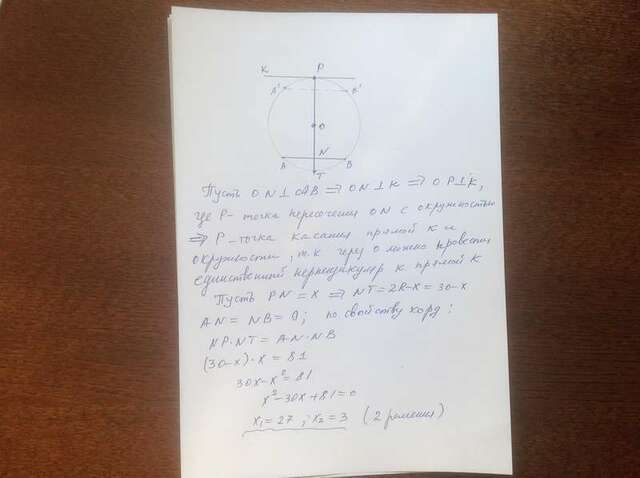 K P
A' B'
O
N
A B
T
Пусть ON⊥AB ⇒ ON⊥K ⇒ OP⊥K,
где P - точка пересечения ON с окружностью
⇒ P - точка касания прямой K и
окружности, т.к через O можно провести
единственный перпендикуляр к прямой K
Пусть PN = x ⇒ NT = 2R-x = 30-x
AN = NB = 9; по свойству хорд:
NP·NT = AN·NB
(30-x)·x = 81
30x-x² = 81
x²-30x+81=0
x₁=27, x₂=3 (2 решения)